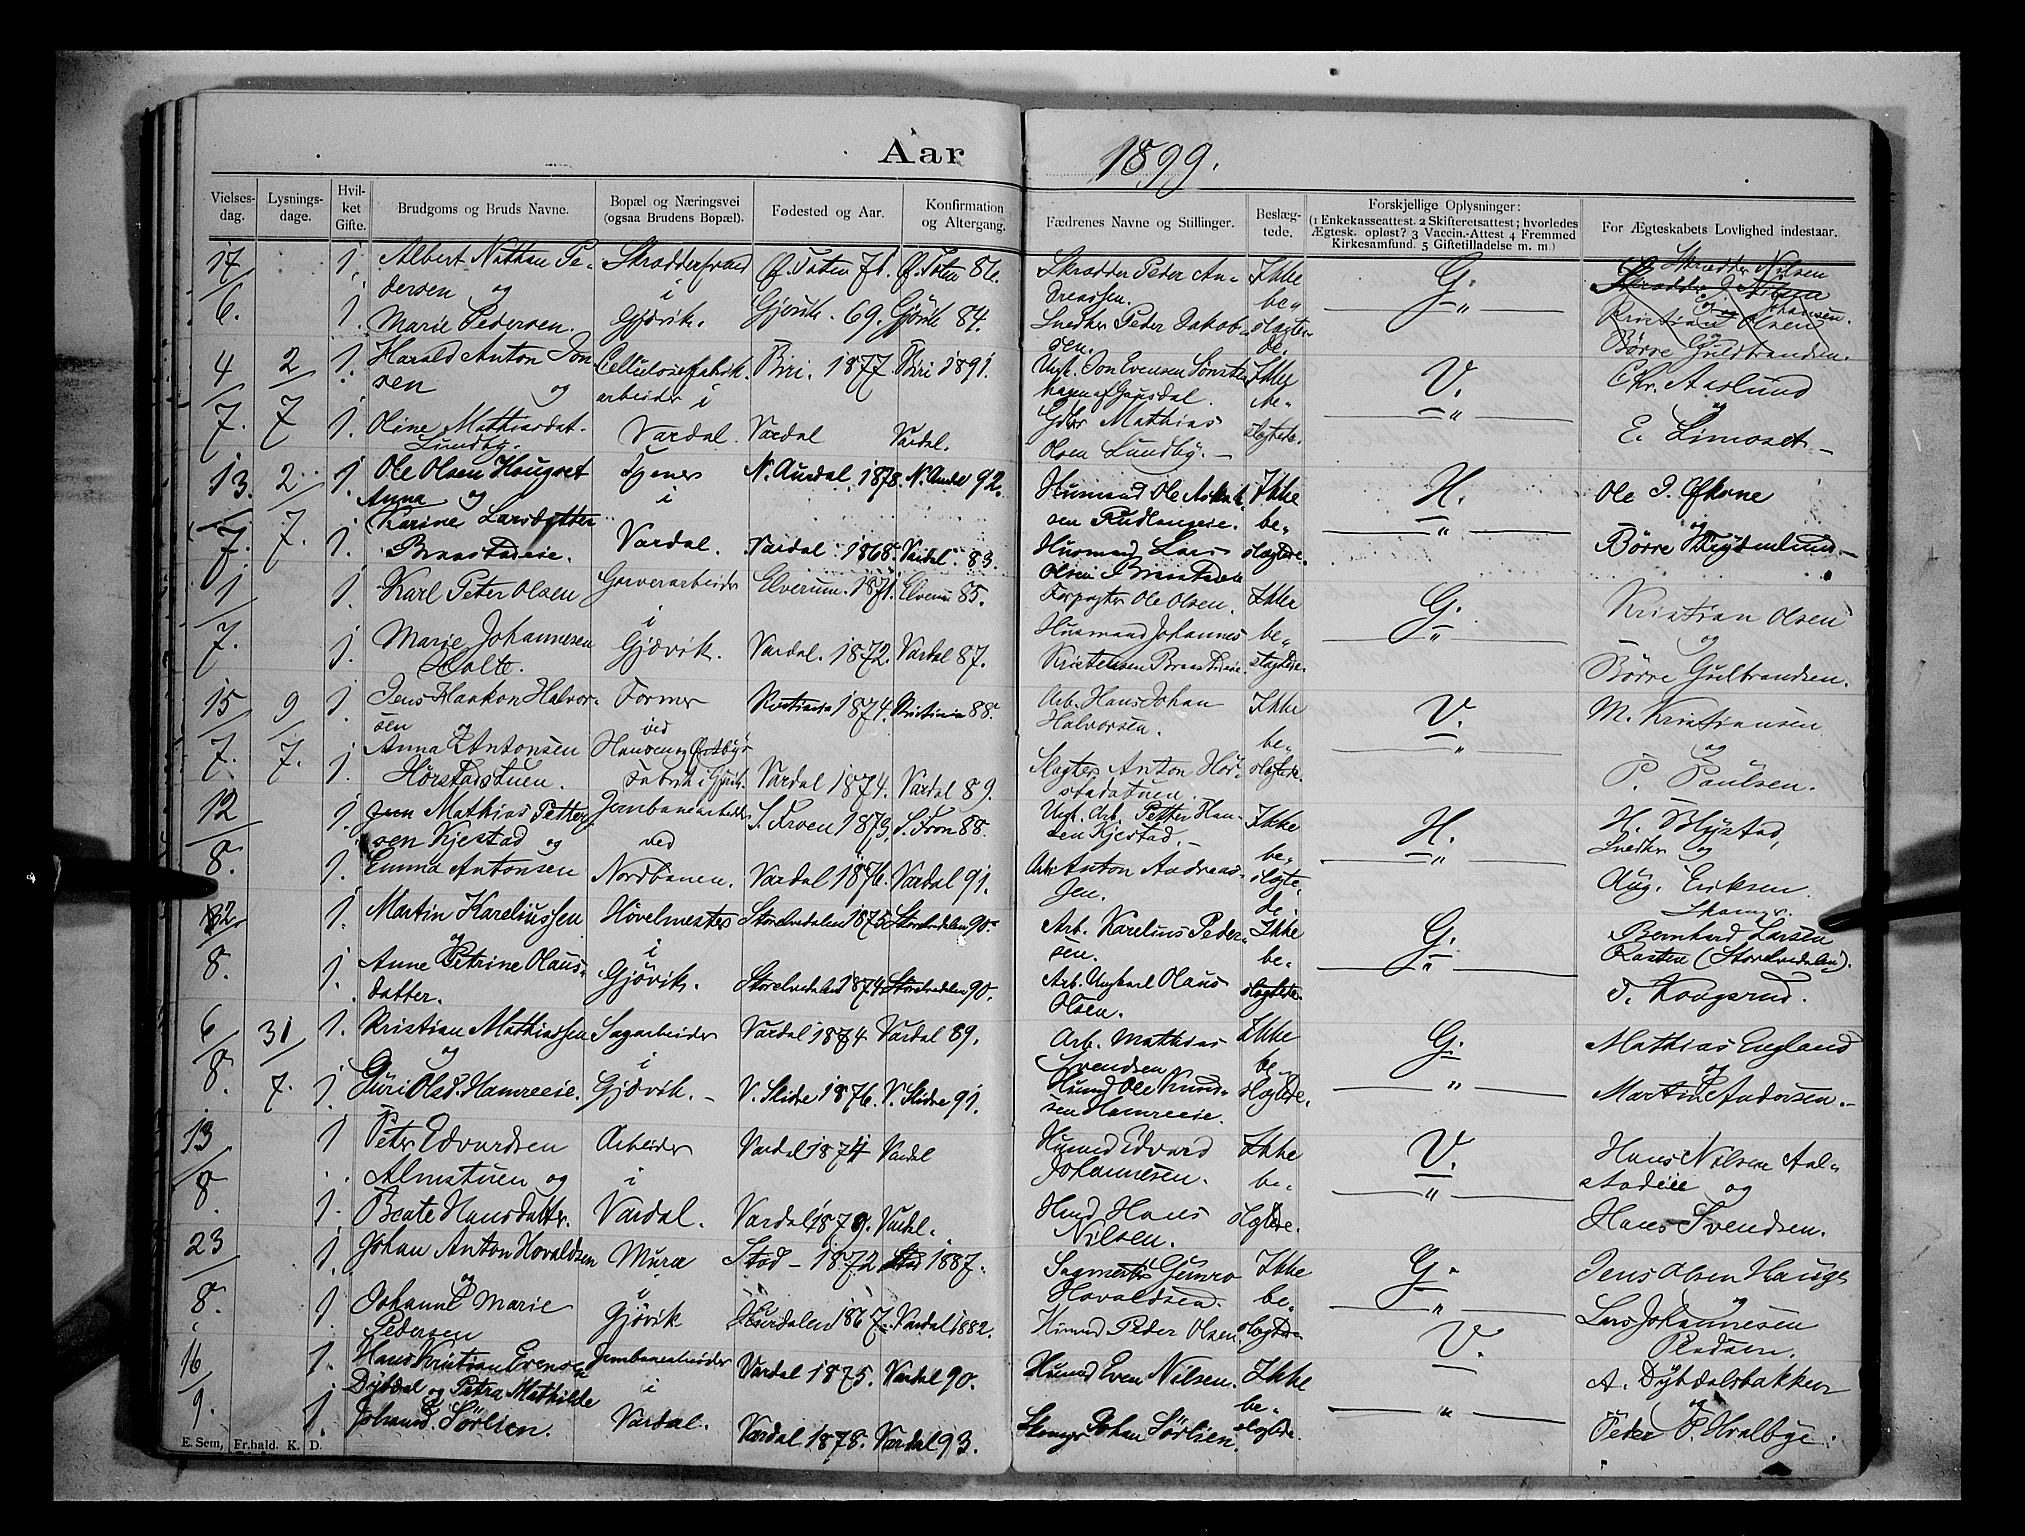 Aar 1899.
Vielses-dag. Lysnings-dage. Hvil-ket Gifte. Brudgoms og Bruds Navne. Bopæl og Næringsvei (ogsaa Brudens Bopæl). Fødested og Aar. Konfirmation og Altergang. Fædrenes Navne og Stillinger. Beslæg-tede. Forskjellige Oplysninger: (1 Enkekasseattest. 2 Skifteretsattest; hvorledes Ægtesk. opløst? 3 Vaccin.-Attest 4 Fremmed Kirkesamfund. 5 Giftetilladelse m. m) For Ægteskabets Lovlighed indestaar.
17/6. 1. Albert Nathan Pe- Ø. Toten 71. Ø. Toten 86. Skrædder Peder An- Ikke G. Skrædder Nilsen
dersen og i dreassen. be„ „
1. Marie Pedersen. Gjøvik. Gjøvik. 69. Gjøvik 84. Snedker Peder Jakob- slægte- Kristian Olsen
sen. de. Børre Guldbrandsen.
4/7. 2/7 1. Harald Anton Jon Cellulosefabrik- Biri. 1877. Biri 1891. Jon Evensen Ikke V. Chr. Aaslund
sen og arbeider i Gausdal. be- „ og
1. Oline Mathiasdat. Vardal. Vardal Vardal. Mathias slægtede. E. Limoset
Lundby. Olsen Lundby.
13./7. 2/7. 1. Ole Olsen Haugset Tjener N. Aurdal. 1878. N. Aurdal 92. Husmand Ole Ikke H. Ole J. Økerne
Anna og i sen be„ „ og
Karine Larsdatter Vardal. Vardal. 1868. Vardal. 83. Husmand Lars slægtede. Børre
1. Braastadeie. Olsen Braastadeie
1/7. 1. Karl Peter Olsen Garverarbeider Elverum. 1871. Elverum 85. Forpagter Ole Olsen. Ikke G. Kristian Olsen
i Husmand Johannes be„ „ og
1. Marie Johannesen Gjøvik. Vardal. 1872. Vardal 87. Kristensen Braastadeie. slægtede. Børre Gulbrandsen.
Holte.
15/7. 9/7. 1. Jens Haakon Halvor- Former Kristiania 1874. Kristiania 88. Arb. Hans Johan Ikke V. M. Kristiansen
sen og ved Halvorsen. be„ „ og
Anna Antonsen Hansen og Østbys
1. Hørstadstuen. Fabrik i Gjøvik. Vardal 1874. Vardal 89. Slagter Anton Hør- slægtede. P. Paulsen.
stadstuen.
12/8. 1. Mathias Petter Jernbanearbeider S. Froen 1873. S. Fron 88. Ungk. Arb. Petter Han- Ikke H. H. Blystad,
sen Kjestad og ved sen Kjestad. be„ „ Snedker og
1. Emma Antonsen Nordbanen. Vardal 1876. Vardal 91. Arb. Anton Andreas- slægte- Aug. Eriksen
sen. de. Skomger.
12/8. 1. Martin Kareliussen Høvelmester Storelvedalen 1875 Storelvedalen 90. Arb. Karelius Peder- Ikke G. Bernhard Larsen
og i sen. be„ „ Rasten (Storelvedalen).
1. Anne Petrine Olaus- Gjøvik. Storelvedalen 1874. Storelvedalen 90. Arb. Ungkarl Olaus slægtede. T. Kongsrud.
datter. Olsen.
6/8. 31/7. 1. Kristian Mathiassen Sagarbeider Vardal 1874 Vardal 89. Arb. Mathias Ikke G. Mathias England
og i Svendsen be„ og
1. Guri Olsd. Hamreeie. Gjøvik. V. Slidre 1876. V. Slidre 91. Husmd Ole Knud- slægtede. „ Martin Andersen.
sen Hamreeie.
13/8. 1 Peter Edvardsen Arbeider Vardal 1874 Vardal Husmd Edvard Ikke V. Hans Nilsen Aal-
Almstuen og i Johannesen. be„ „ stadeie og
1. Beate Hansdatter. Vardal. Vardal 1879. Vardal. Husmd Hans slægtede. Hans Svendsen.
Nilsen.
23/8. 1. Johan Anton Hovaldsen Murer Stod 1872 Stod 1887. Sagmester Gunro Ikke G. Jens Olsen Hauge
og i Hovaldsen. be„ „ og
1. Johanne Marie Gjøvik Hurdalen 1867. Vardal 1882. Husmd Peder Olsen. slægtede Lars Johannesen
Pedersen
16/9. 1. Hans Kristian Evensen Jernbanearbeider Vardal 1875. Vardal 90. Husmd Even Nilsen. Ikke V. A. Dybdalsbakken
Dybdal og Petra Mathilde i be„ og
1. Johansd. Sørlien. Vardal. Vardal 1878. Vardal 93. Skomger Johan Sørlien. slægtede. „ Peder P. Hvalbye.
E. Sem, Fr.hald. K. D.